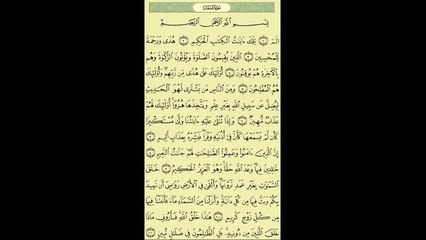 سورة لقمان
بِسْمِ اللَّهِ الرَّحْمَٰنِ الرَّحِيمِ
الٓمٓ ۝ تِلْكَ ءَايَٰتُ الْكِتَٰبِ الْحَكِيمِ ۝ هُدًى وَرَحْمَةً
لِّلْمُحْسِنِينَ ۝ الَّذِينَ يُقِيمُونَ الصَّلَوٰةَ وَيُؤْتُونَ الزَّكَوٰةَ وَهُم
بِالْءَاخِرَةِ هُمْ يُوقِنُونَ ۝ أُو۟لَٰٓئِكَ عَلَىٰ هُدًى مِّن رَّبِّهِمْ وَأُو۟لَٰٓئِكَ
هُمُ الْمُفْلِحُونَ ۝ وَمِنَ النَّاسِ مَن يَشْتَرِى لَهْوَ الْحَدِيثِ
لِيُضِلَّ عَن سَبِيلِ اللَّهِ بِغَيْرِ عِلْمٍ وَيَتَّخِذَهَا هُزُوًا أُو۟لَٰٓئِكَ لَهُمْ
عَذَابٌ مُّهِينٌ ۝ وَإِذَا تُتْلَىٰ عَلَيْهِ ءَايَٰتُنَا وَلَّىٰ مُسْتَكْبِرًا
كَأَن لَّمْ يَسْمَعْهَا كَأَنَّ فِىٓ أُذُنَيْهِ وَقْرًا فَبَشِّرْهُ بِعَذَابٍ أَلِيمٍ ۝
إِنَّ الَّذِينَ ءَامَنُوا۟ وَعَمِلُوا۟ الصَّٰلِحَٰتِ لَهُمْ جَنَّٰتُ النَّعِيمِ ۝
خَٰلِدِينَ فِيهَا وَعْدَ اللَّهِ حَقًّا وَهُوَ الْعَزِيزُ الْحَكِيمُ ۝ خَلَقَ
السَّمَٰوَٰتِ بِغَيْرِ عَمَدٍ تَرَوْنَهَا وَأَلْقَىٰ فِى الْأَرْضِ رَوَٰسِىَ أَن تَمِيدَ
بِكُمْ وَبَثَّ فِيهَا مِن كُلِّ دَآبَّةٍ وَأَنزَلْنَا مِنَ السَّمَآءِ مَآءً فَأَنۢبَتْنَا فِيهَا
مِن كُلِّ زَوْجٍ كَرِيمٍ ۝ هَٰذَا خَلْقُ اللَّهِ فَأَرُونِى مَاذَا
خَلَقَ الَّذِينَ مِن دُونِهِ بَلِ الظَّٰلِمُونَ فِى ضَلَٰلٍ مُّبِينٍ ۝